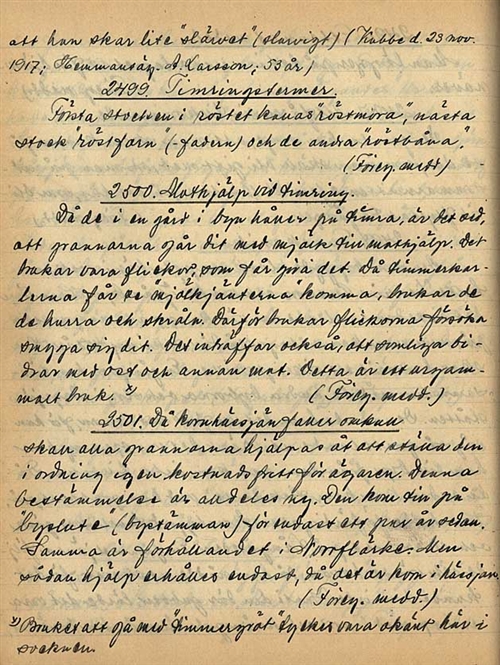 att han skar lite "slärvet" (slarvigt) (Kubbe d. 23 nov.
1917; Hemmansäg. A. Larsson; 53 år)
2499. Timringstermer.
Första stocken i röstet kallas "röstmora", nästa
stock "röstfarn" (-fadern) och de andra "röstbåna".
(Föreg. medd)
2500. Mathjälp vid timring.
Då de i en gård i byn håller på timra, är det sed,
att grannarna går dit med mjölk till mathjälp. Det
brukar vara flickor, som får göra det. Då timmerkar-
lerna får se "mjölkjänterna" komma, brukar de
de hurra och skråla. Därför brukar flickorna försöka
smyga sig dit. Det inträffar också, att somliga bi-
drar med ost och annan mat. Detta är ett urgam-
malt bruk. x)
(Föreg. medd.)
2501. Då kornhässjan faller omkull
skall alla grannarna hjälpas åt att ställa den
i ordning igen kostnadsfritt för ägaren. Denna
bestämmelse är alldeles ny. Den kom till på
"byslute" (bystämman) för endast ett par år sedan.
Samma är förhållandet i Norrflärke. Men
sådan hjälp erhålles endast, då det är korn i hässjan.
(Föreg. medd.)
x) Bruket att gå med "timmergröt" tycks vara okänt här i
socknen.